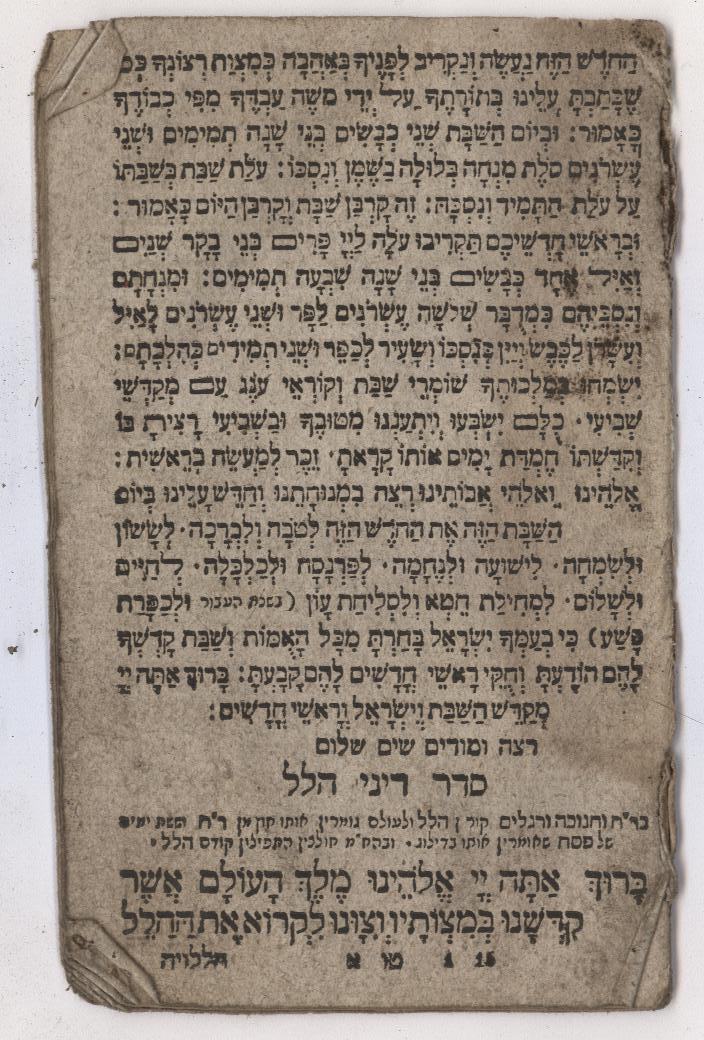 החֹדֶשׁ הַזֶּה נַעֲשֶׂה וְנַקְרִיב לְפָנֶיךָ בְּאַהֲבָה כְּמִצְוַת רְצוֹנְךָ כְּמוֹ
שֶׁכָּתַבְתָּ עָלֵינוּ בְּתוֹרָתֶךָ עַל יְדֵי מֹשֶׁה עַבְדֶּךָ מִפִּי כְבוֹדֶךָ
כָּאָמוּר: וּבְיוֹם הַשַּׁבָּת שְׁנֵי כְבָשִׂים בְּנֵי שָׁנָה תְּמִימִים וּשְׁנֵי
עֶשְׂרֹנִים סֹלֶת מִנְחָה בְּלוּלָה בַשֶּׁמֶן וְנִסְכּוֹ: עֹלַת שַׁבַּת בְּשַׁבַּתּוֹ
עַל עֹלַת הַתָּמִיד וְנִסְכָּהּ: זֶה קָרְבַּן שַׁבָּת וְקָרְבַּן הַיּוֹם כָּאָמוּר:
וּבְרָאשֵׁי חָדְשֵׁיכֶם תַּקְרִיבוּ עֹלָה לַיְיָ פָּרִים בְּנֵי בָקָר שְׁנַיִם
וְאַיִל אֶחָד כְּבָשִׂים בְּנֵי שָׁנָה שִׁבְעָה תְּמִימִים: וּמִנְחָתָם
וְנִסְכֵּיהֶם כִּמְדֻבָּר שְׁלֹשָׁה עֶשְׂרֹנִים לַפָּר וּשְׁנֵי עֶשְׂרֹנִים לָאַיִל
וְעִשָּׂרֹן לַכֶּבֶשׂ וְיַיִן כְּנִסְכּוֹ וְשָׂעִיר לְכַפֵּר וּשְׁנֵי תְמִידִים כְּהִלְכָתָם:
יִשְׂמְחוּ בְמַלְכוּתְךָ שׁוֹמְרֵי שַׁבָּת וְקוֹרְאֵי עֹנֶג עַם מְקַדְּשֵׁי
שְׁבִיעִי· כֻּלָּם יִשְׂבְּעוּ וְיִתְעַנְּגוּ מִטּוּבֶךָ וּבַשְּׁבִיעִי רָצִיתָ בּוֹ
וְקִדַּשְׁתּוֹ חֶמְדַּת יָמִים אוֹתוֹ קָרָאתָ· זֵכֶר לְמַעֲשֵׂה בְרֵאשִׁית:
אֱלֹהֵינוּ וֵאלֹהֵי אֲבוֹתֵינוּ רְצֵה בִמְנוּחָתֵנוּ וְחַדֵּשׁ עָלֵינוּ בְּיוֹם
הַשַּׁבָּת הַזֶּה אֶת הַחֹדֶשׁ הַזֶּה לְטֹבָה וְלִבְרָכָה· לְשָׂשׂוֹן
וּלְשִׂמְחָה· לִישׁוּעָה וּלְנֶחָמָה· לְפַרְנָסָה וּלְכַלְכָּלָה· לְחַיִּים
וּלְשָׁלוֹם· לִמְחִילַת חֵטְא וְלִסְלִיחַת עָוֹן (בשנת העבור וּלְכַפָּרַת
פֶּשַׁע) כִּי בְעַמְּךָ יִשְׂרָאֵל בָּחַרְתָּ מִכָּל הָאֻמּוֹת וְשַׁבַּת קָדְשְׁךָ
לָהֶם הוֹדָעְתָּ וְחֻקֵּי רָאשֵׁי חֳדָשִׁים לָהֶם קָבָעְתָּ: בָּרוּךְ אַתָּה יְיָ
מְקַדֵּשׁ הַשַּׁבָּת וְיִשְׂרָאֵל וְרָאשֵׁי חֳדָשִׁים:
רצה ומודים שים שלום
סדר דיני הלל
בר״ח וחנוכה ורגלים קורין הלל ולעולם גומרין אותו חוץ מן ר״ח וששת ימים
של פסח שאומרין אותו בדילוג· ובהח״מ חולצין התפילין קודם הלל·
בָּרוּךְ אַתָּה יְיָ אֱלֹהֵינוּ מֶלֶךְ הָעוֹלָם אֲשֶׁר
קִדְּשָׁנוּ בְּמִצְוֹתָיו וְצִוָּנוּ לִקְרוֹא אֶת הַהַלֵּל
15 1 טו א הללויה